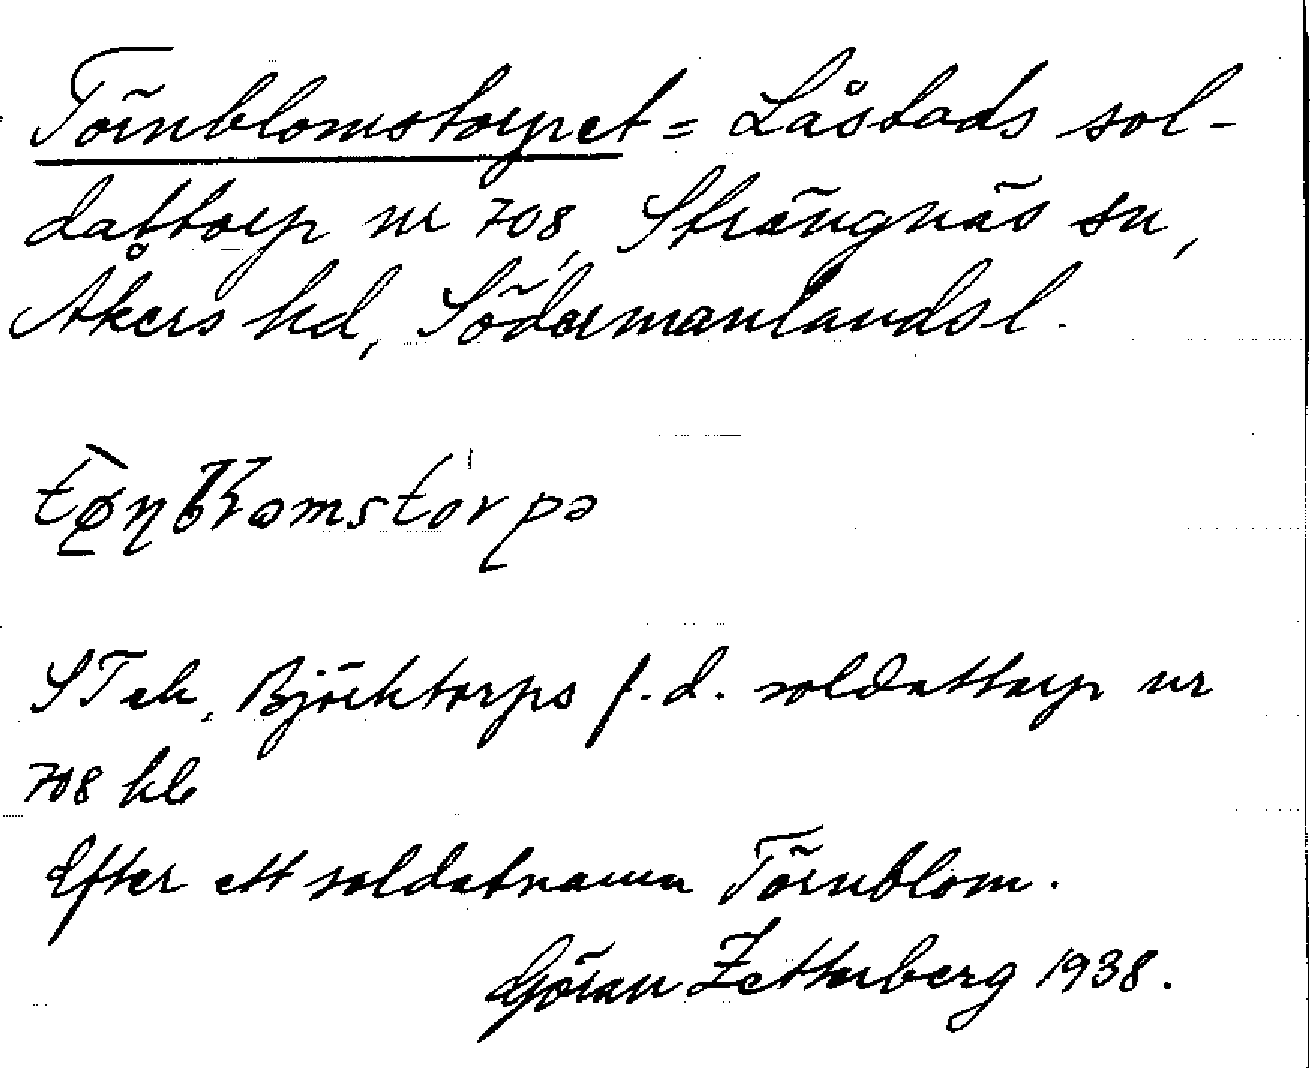 Törnblomstorpet = Låstads sol-
dattorp nr 708, Strängnäs sn,
Åkers hd, Södermanlands l.
STek, Björktorps f.d. soldattorp nr
708 hle
Efter ett soldatnamn Törnblom.
Göran Zetterberg 1938.